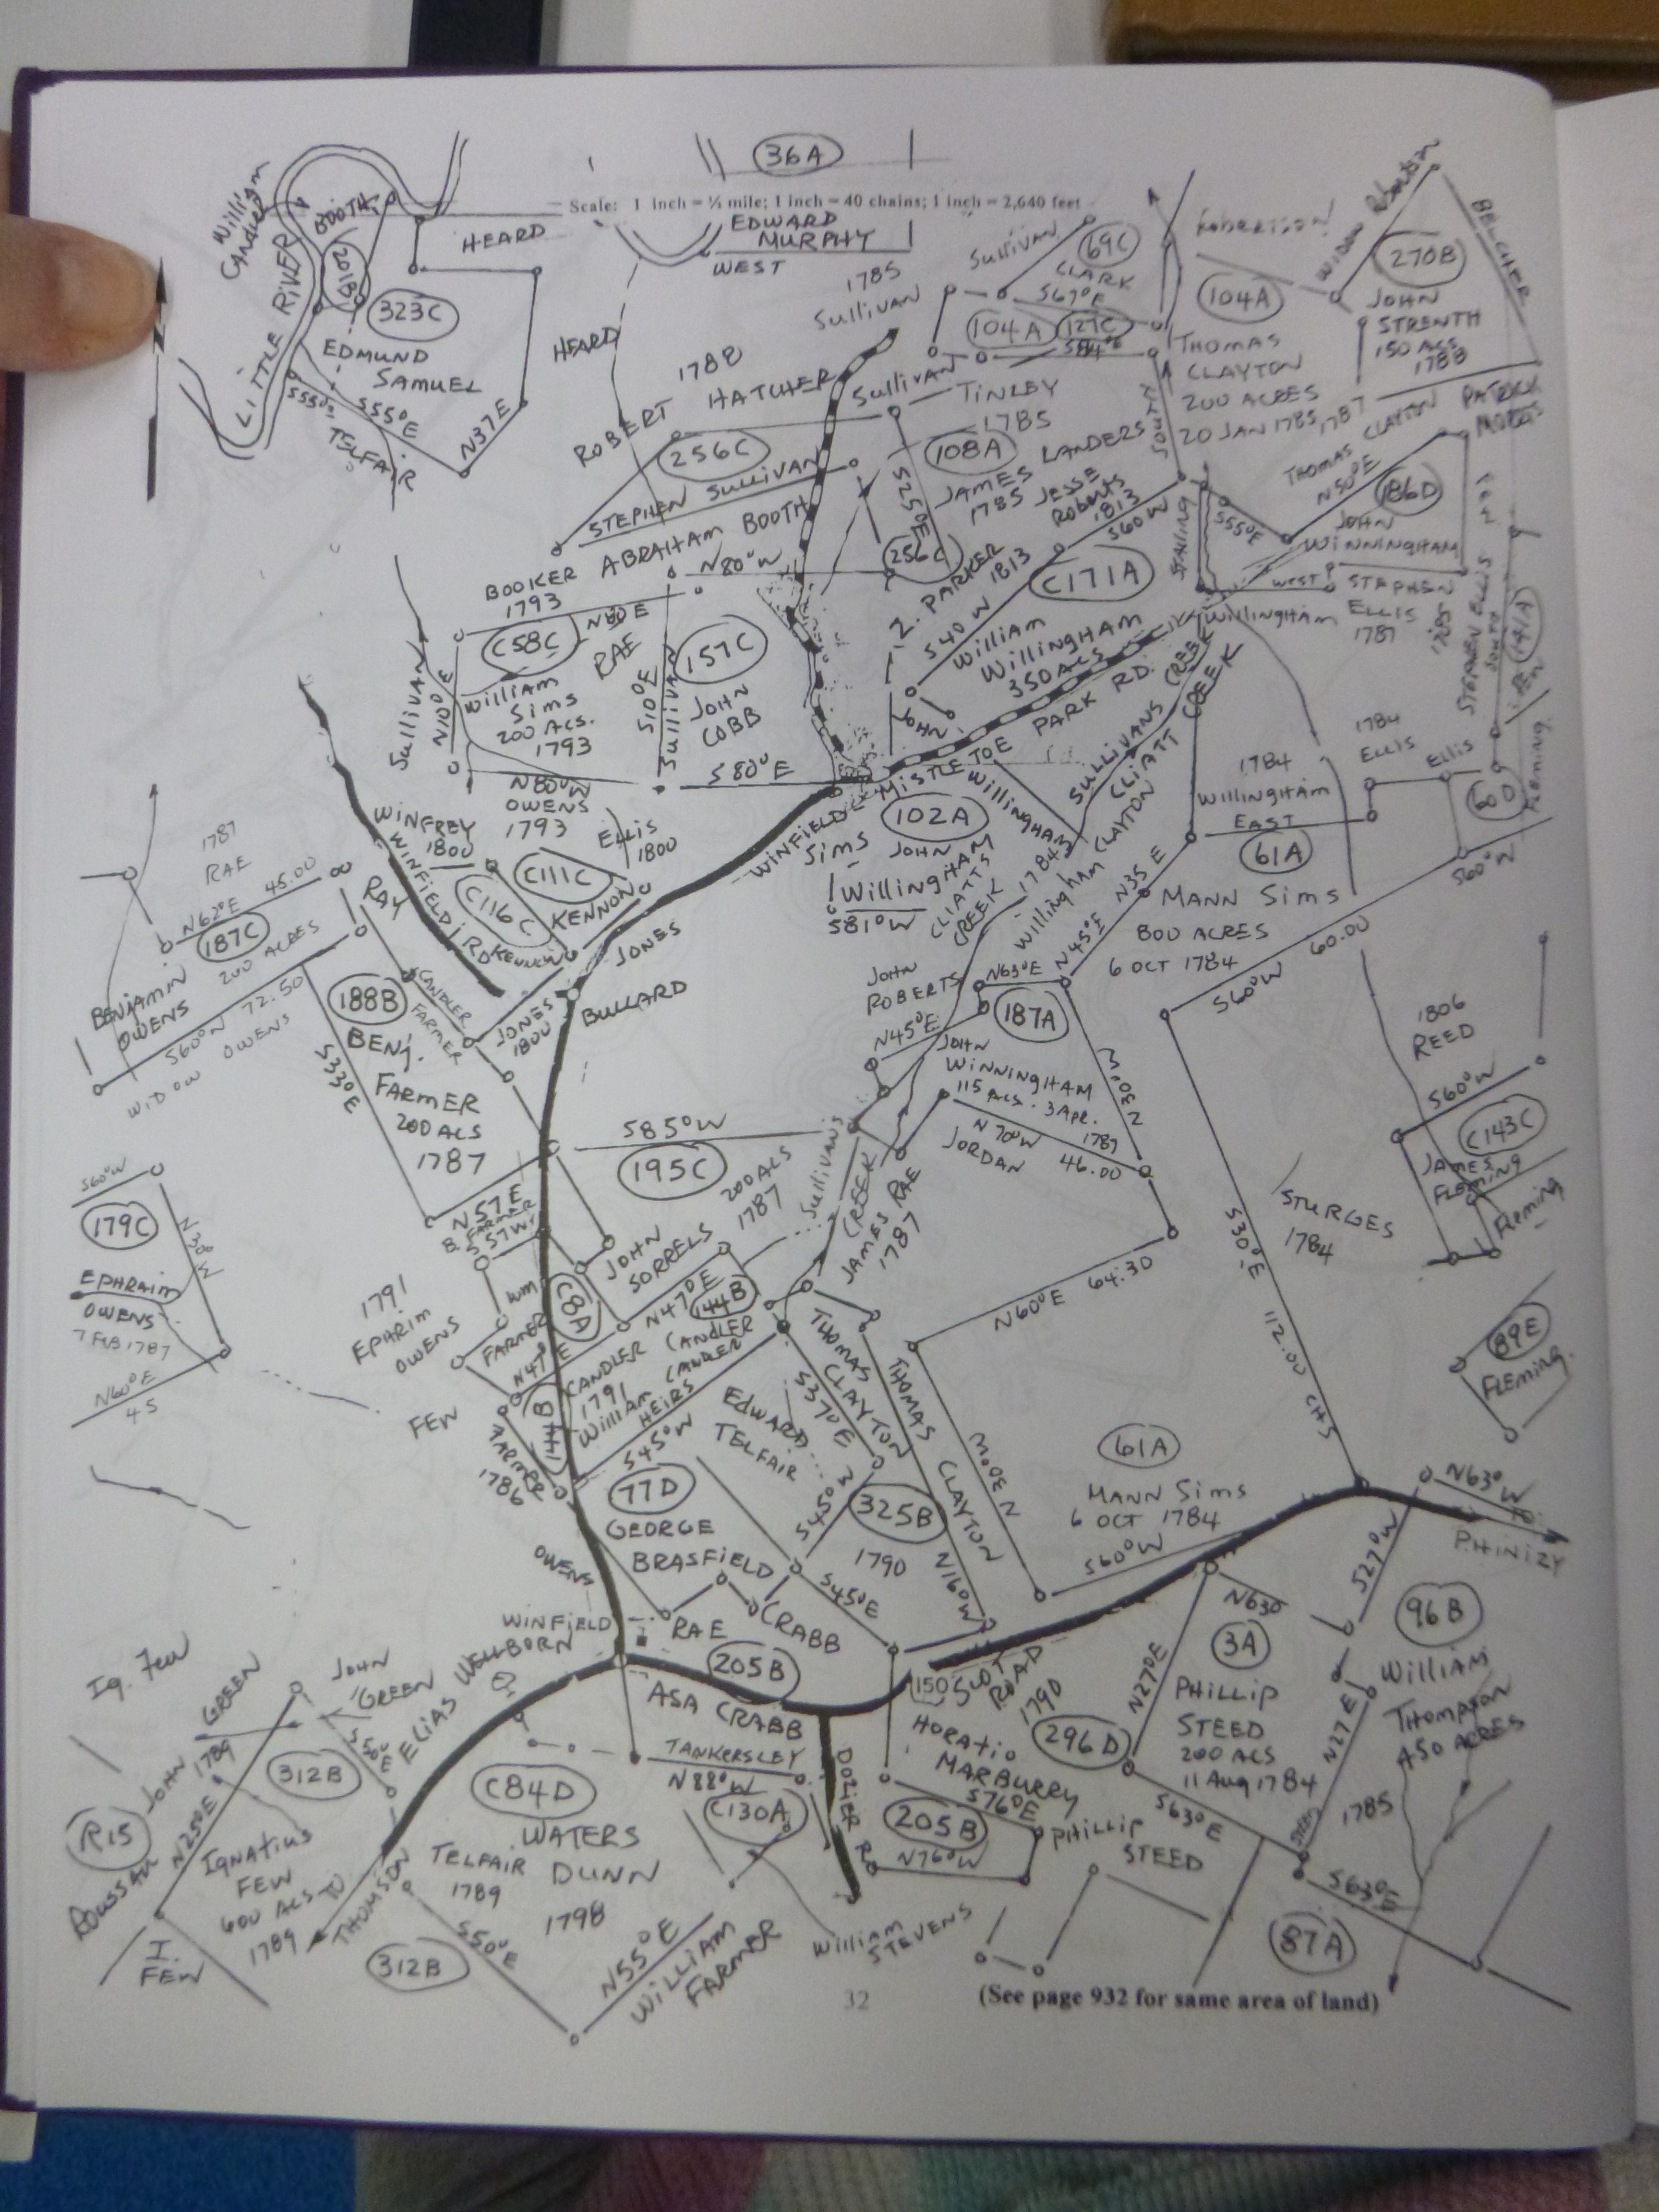 36A
Scale: 1 inch = ½ mile; 1 inch = 40 chains; 1 inch = 2,640 feet
William
Candler
LITTLE RIVER
BOOTH
201B
HEARD
323C
EDMUND
SAMUEL
S55°E
S55°E
TELFAIR
N37E
HEARD
EDWARD
MURPHY
WEST
1785
SULLIVAN
Sullivan
69C
CLARK
S67°E
104A
127C
Robertson
104A
WIDOW
270B
BELCHER
JOHN
STRENTH
150 ACS
1788
THOMAS
CLAYTON
200 ACRES
20 JAN 1785
1787
CLAYTON
PATRICK
1788
ROBERT HATCHER
Sullivan
TINLEY
1785
256C
108A
JAMES LANDERS
1785
JESSE
Roberts
1813
SOUTH
S60W
STEPHEN SULLIVAN
S25°E
THOMAS
N50°E
186D
JOHN
WINNINGHAM
S55°E
STALING
WEST
STAPHEN
ELLIS
1787
1785
STEPHEN ELLIS
SOUTH
141A
ABRAHAM BOOTH
BOOKER
1793
N80°W
256C
Z. PARKER
1813
C171A
S40W
William
Willingham
350 ACS
Willingham
N80E
C58C
RAE
157C
JOHN
COBB
Sullivan
N10°E
William
Sims
200 ACS.
1793
S10°E
Sullivan
S80°E
JOHN
MISTLETOE PARK RD.
SULLIVANS CREEK
CLIATT CREEK
N80°W
OWENS
1793
WINFREY
1800
ELLIS
1800
WINFIELD RD
C111C
C116C
KENNON
Kennon
WINFIELD
Sims
102A
JOHN
Willingham
S81°W
Willingham
CLIATTS
CREEK
1784
Willingham
CLAYTON
1784
Willingham
EAST
1784
ELLIS
Ellis
60D
Fleming
61A
S60°W
MANN Sims
800 ACRES
6 OCT 1784
N35E
N45°E
S60°W 60.00
1787
RAE
N62°E 45.00
187C
200 ACRES
BENJAMIN
OWENS
S60°W 72.50
OWENS
WIDOW
RAY
CANDLER
FARMER
188B
BENJ.
FARMER
200 ACS
1787
S33°E
JONES
JONES
1800
BULLARD
JOHN
ROBERTS
N63°E
187A
N45°E
JOHN
WINNINGHAM
115 ACS. 3 Apr.
1787
N70°W
46.00
JORDAN
N30°W
1806
REED
S60°W
C143C
JAMES
Fleming
Fleming
S60°W
179C
N30°W
EPHRAIM
OWENS
7 FEB 1787
N60°E
45
S85°W
195C
200 ACS
1787
Sullivans
CREEK
JAMES RAE
1787
N57E
B. FARMER
S57W
JOHN
SORRELS
N47°E
144B
STURGES
1784
S30°E
112.00 CHS
N60°E 64.30
1791
EPHRIM
OWENS
WM
FARMER
C8A
N47°E
CANDLER
1791
CANDLER
William CANDLER
HEIRS
144B
FEW
FARMER
1786
S45°W
EDWARD
TELFAIR
THOMAS
CLAYTON
S37°E
THOMAS
CLAYTON
89E
Fleming.
77D
GEORGE
BRASFIELD
S45°W
325B
1790
N30°W
61A
MANN Sims
6 OCT 1784
S60°W
N63°W
TO
PHINIZY
S27°W
OWENS
WINFIELD
RAE
CRABB
S45°E
N16°W
205B
ASA CRABB
150
SCOTT
ROAD
1790
N63°
3A
PHILLIP
STEED
200 ACS
11 Aug 1784
N27°E
96B
William
Thompson
450 ACRES
N27E
1785
Ig. Few
JOHN
GREEN
ELIAS WELLBORN
JOHN GREEN
1789
312B
S50°E
R15
N25°E
IGNATIUS
FEW
600 ACS
1789
TO
THOMSON
I.
FEW
C84D
WATERS
DUNN
1798
TELFAIR
1789
TANKERSLEY
N88°W
C130A
DOZIER RD
HORATIO
MARBURRY
S76°E
205B
N76°W
PHILLIP
STEED
296D
S63°E
STEED
S63°E
87A
312B
S50°E
N55°E
WILLIAM
FARMER
William
STEVENS
32
(See page 932 for same area of land)